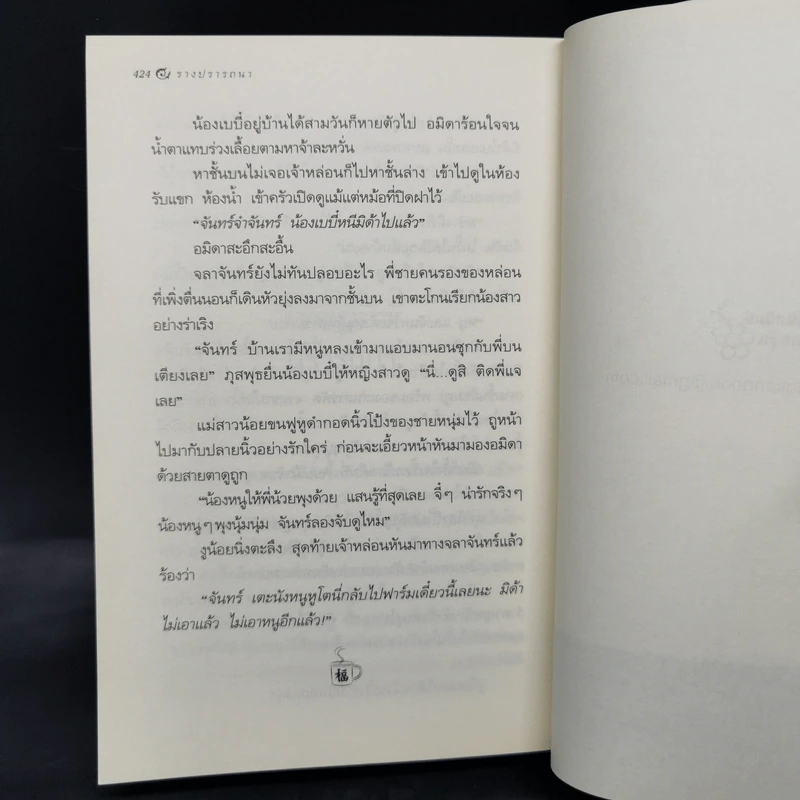 424 รางปรารถนา
น้องเบบี๋อยู่บ้านได้สามวันก็หายตัวไป อมิดาร้อนใจจน
น้ำตาแทบร่วงเลื้อยตามหาจ้าละหวั่น
หาชั้นบนไม่เจอเจ้าหล่อนก็ไปหาชั้นล่าง เข้าไปดูในห้อง
รับแขก ห้องน้ำ เข้าครัวเปิดดูแม้แต่หม้อที่ปิดฝาไว้
“จันทร์จ๋าจันทร์ น้องเบบี๋หนีมิด้าไปแล้ว”
อมิดาสะอึกสะอื้น
จลาจันทร์ยังไม่ทันปลอบอะไร พี่ชายคนรองของหล่อน
ที่เพิ่งตื่นนอนก็เดินหัวยุ่งลงมาจากชั้นบน เขาตะโกนเรียกน้องสาว
อย่างร่าเริง
“จันทร์ บ้านเรามีหนูหลงเข้ามาแอบมานอนซุกกับพี่บน
เตียงเลย” ภุสพุธยื่นน้องเบบี๋ให้หญิงสาวดู “นี่...ดูสิ ติดพี่แจ
เลย”
แม่สาวน้อยขนฟูหูดำกอดนิ้วโป้งของชายหนุ่มไว้ ถูหน้า
ไปมากับปลายนิ้วอย่างรักใคร่ ก่อนจะเอี้ยวหน้าหันมามองอมิดา
ด้วยสายตาดูถูก
“น้องหนูให้พี่น้วยพุงด้วย แสนรู้ที่สุดเลย จี๋ๆ น่ารักจริงๆ
น้องหนูๆ พุงนุ้มนุ่ม จันทร์ลองจับดูไหม”
งูน้อยนิ่งตะลึง สุดท้ายเจ้าหล่อนหันมาทางจลาจันทร์แล้ว
ร้องว่า
“จันทร์ เตะนังหนูหูโตนี่กลับไปฟาร์มเดี๋ยวนี้เลยนะ มิด้า
ไม่เอาแล้ว ไม่เอาหนูอีกแล้ว!”
福